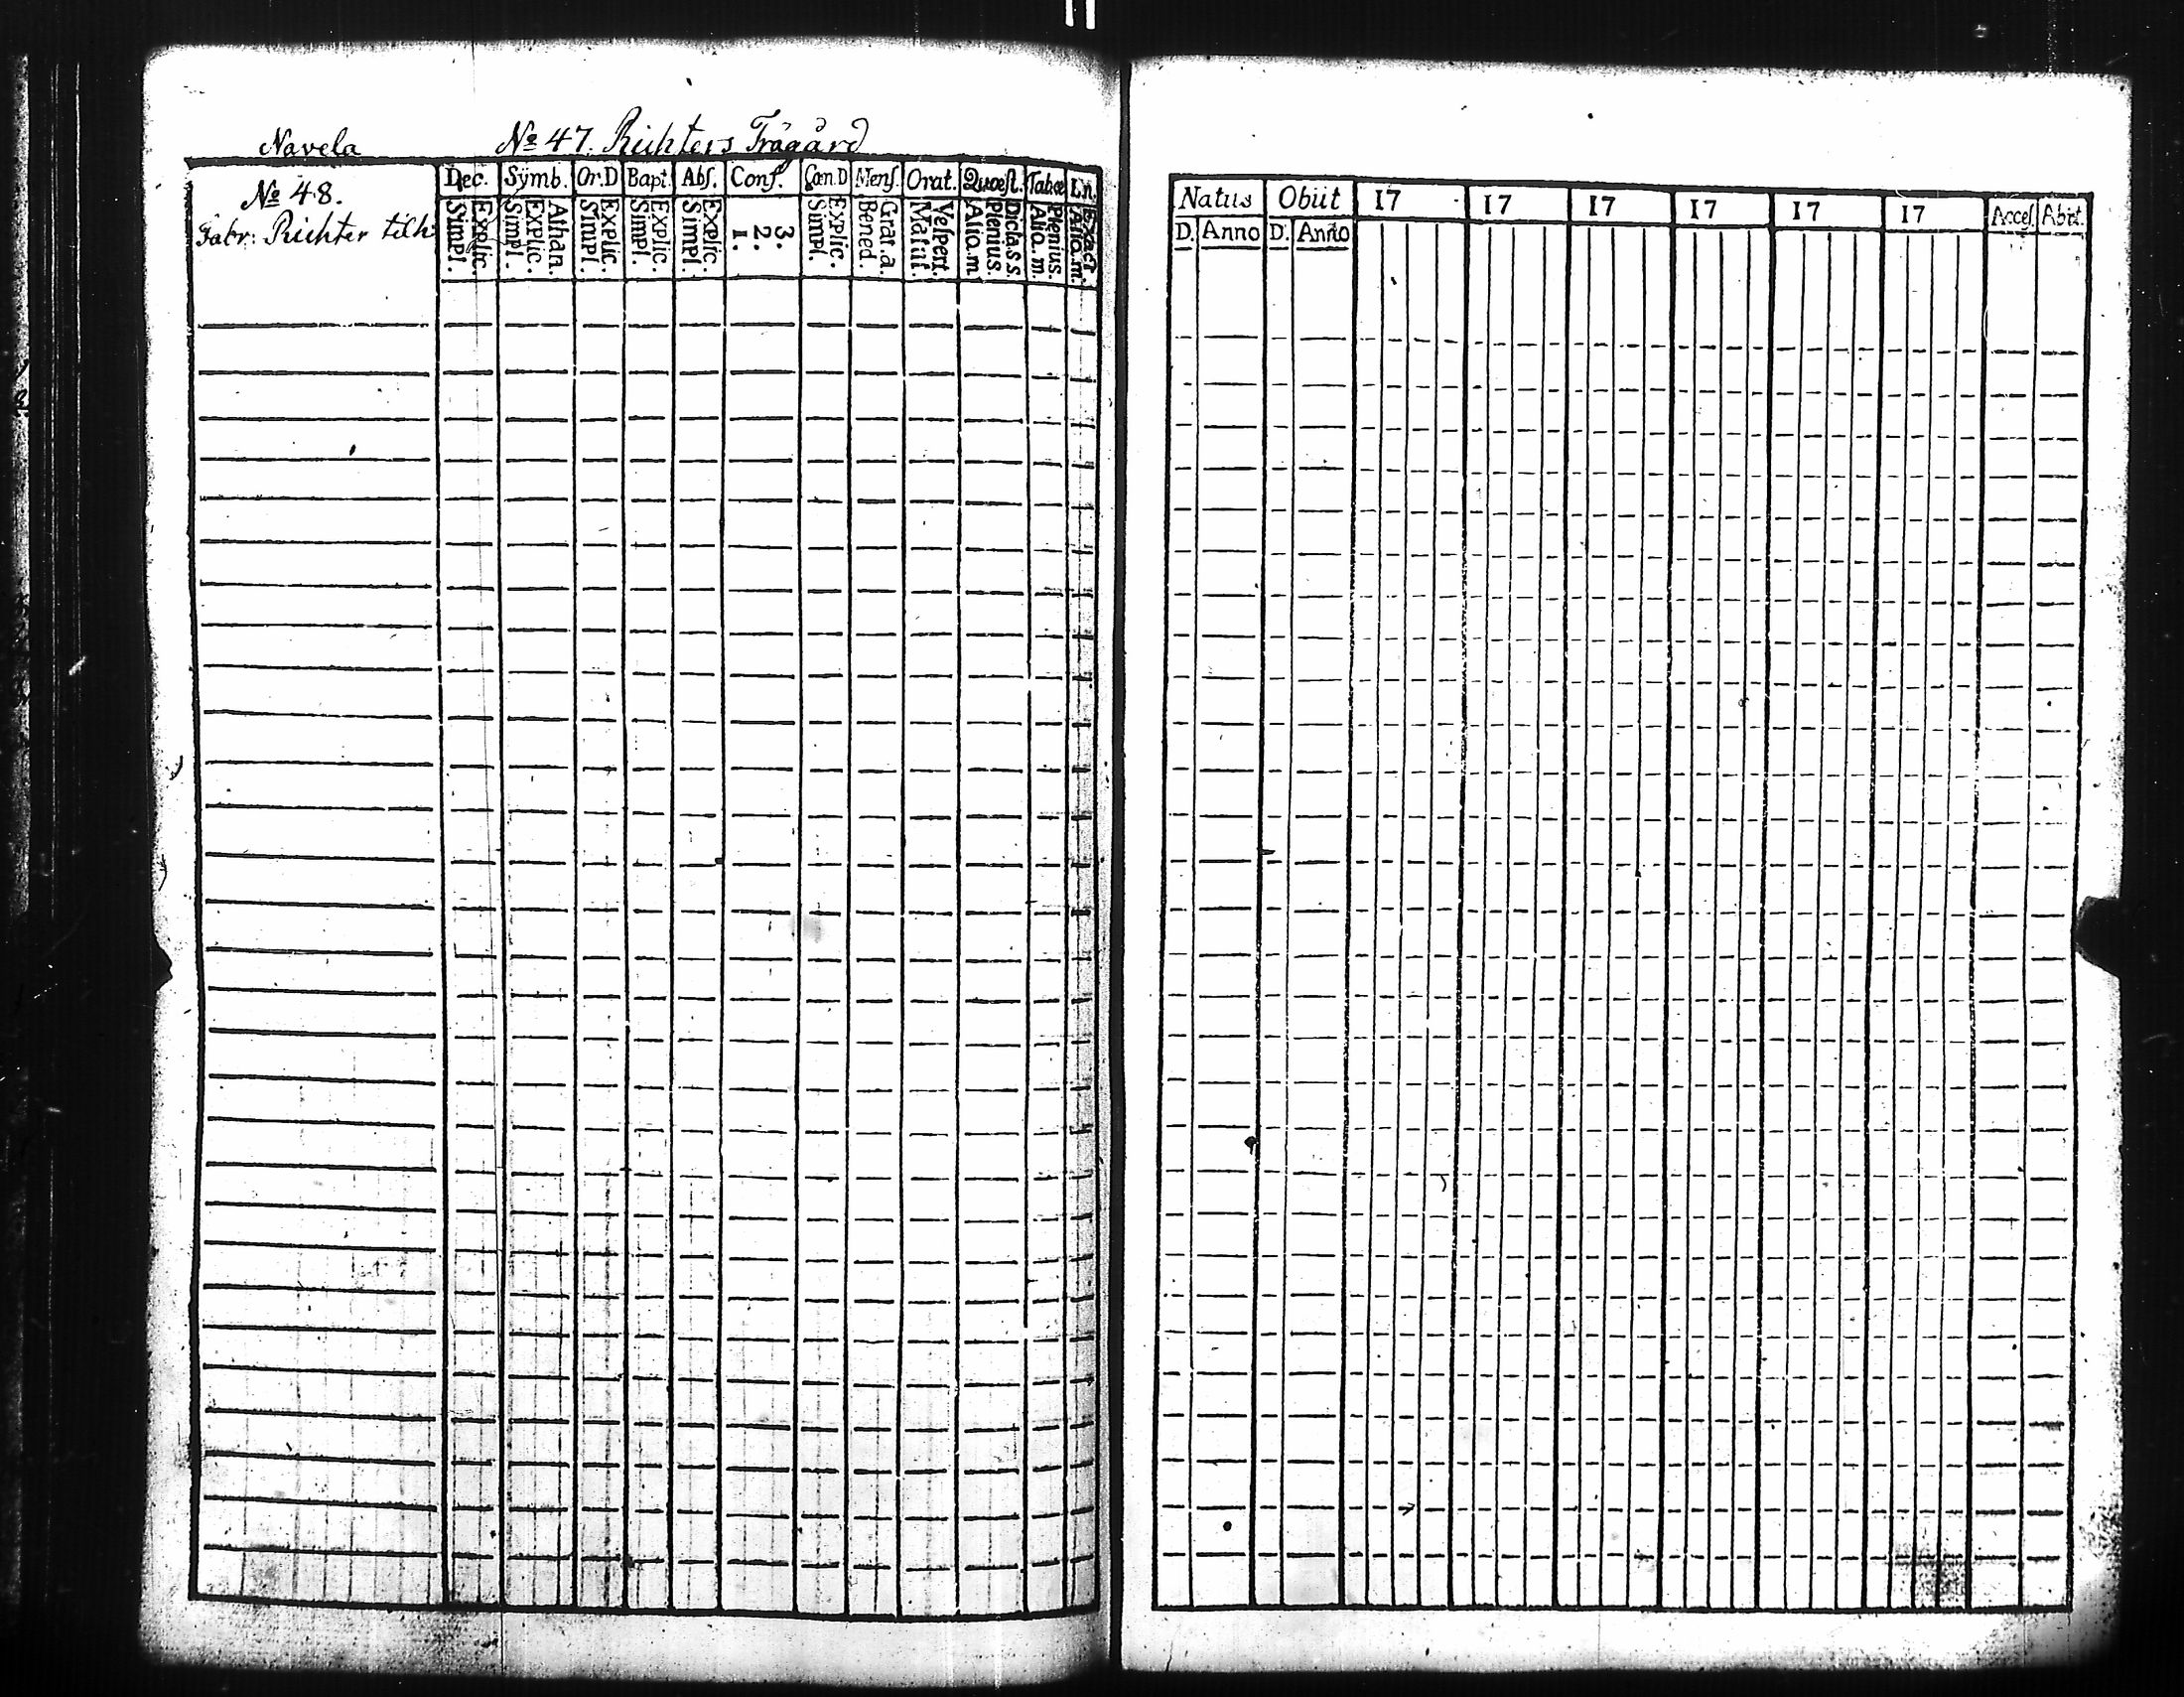 Navela № 47. Richters Trägård
№ 48.
Fabr: Richter tilh:
Dec. Sÿmb. Or.D Bapt. Abſ. Conf. Cœn.D Menſ. Orat. Quœſt. Tabœ Ln.
Explic. Simpl. Athan. Explic. Simpl. Explic. Simpl. Explic. Simpl. Explic. Simpl. 3. 2. 1. Explic. Simpl. Grat.a. Bened. Veſpert. Matut. Dicta.s.s. Plenius. Alio.m. Plenius. Alio.m. Exact. Alio.m.
Natus Obiit 17 17 17 17 17 17 Acceſ. Abiit.
D. Anno D. Anno